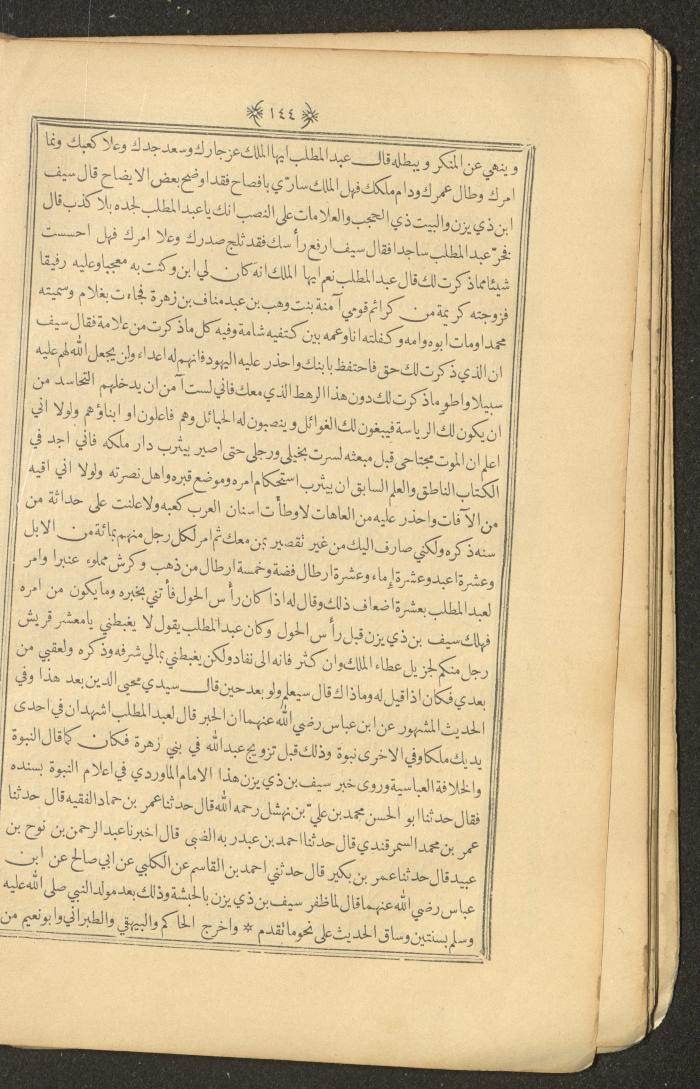 ١٤٤
وينهي عن المنكر ويبطله قال عبد المطلب ايها الملك عز جارك وسعد جدك وعلا كعبك ونما
امرك وطال عمرك ودام ملكك فهل الملك سارّي بافصاح فقد اوضح بعض الايضاح قال سيف
ابن ذي يزن والبيت ذي الحجب والعلامات على النصب انك يا عبد المطلب لجده بلا كذب قال
فخرّ عبد المطلب ساجدا فقال سيف ارفع رأسك فقد ثلج صدرك وعلا امرك فهل احسست
شيئا مما ذكرت لك قال عبد المطلب نعم ايها الملك انه كان لي ابن وكنت به معجبا وعليه رفيقا
فزوجته كريمة من كرائم قومي آمنة بنت وهب بن عبد مناف بن زهرة فجاءت بغلام وسميته
محمدا ومات ابوه وامه وكفلته انا وعمه بين كتفيه شامة وفيه كل ما ذكرت من علامة فقال سيف
ان الذي ذكرت لك حق فاحتفظ بابنك واحذر عليه اليهود فانهم له اعداء ولن يجعل الله لهم عليه
سبيلا واطو ما ذكرت لك دون هذا الرهط الذي معك فاني لست آمن ان يدخلهم التحاسد من
ان يكون لك الرياسة فيبغون لك الغوائل وينصبون له الحبائل وهم فاعلون او ابناؤهم ولولا اني
اعلم ان الموت مجتاحى قبل مبعثه لسرت بخيلي ورجلي حتى اصير بيثرب دار ملكه فاني اجد في
الكتاب الناطق والعلم السابق ان بيثرب استحكام امره وموضع قبره واهل نصرته ولولا اني اقيه
من الآفات واحذر عليه من العاهات لاوطأت اسنان العرب كعبه ولاعلنت على حداثة من
سنه ذكره ولكني صارف اليك من غير تقصير بمن معك ثم امر لكل رجل منهم بمائة من الابل
وعشرة اعبد وعشرة إماء وعشرة ارطال فضة وخمسة ارطال من ذهب وكرش مملوء عنبرا وامر
لعبد المطلب بعشرة اضعاف ذلك وقال له اذا كان رأس الحول فأتني بخبره وما يكون من امره
فهلك سيف بن ذي يزن قبل رأس الحول وكان عبد المطلب يقول لا يغبطني يا معشر قريش
رجل منكم لجزيل عطاء الملك وان كثر فانه الى نفاد ولكن يغبطني بمالي شرفه وذكره ولعقبي من
بعدي فكان اذا قيل له وما ذاك قال سيعلم ولو بعد حين قال سيدي محيي الدين بعد هذا وفي
الحديث المشهور عن ابن عباس رضي الله عنهما ان الحبر قال لعبد المطلب اشهد ان في احدى
يديك ملكا وفي الاخرى نبوة وذلك قبل تزويج عبد الله في بني زهرة فكان كما قال النبوة
والخلافة العباسية وروى خبر سيف بن ذي يزن هذا الامام الماوردي في اعلام النبوة بسنده
فقال حدثنا ابو الحسن محمد بن عليّ بن نهشل رحمه الله قال حدثنا عمر بن حماد الفقيه قال حدثنا
عمر بن محمد السمرقندي قال حدثنا احمد بن عبد ربه الضبى قال اخبرنا عبد الرحمن بن نوح بن
عبيد قال حدثنا عمر بن بكير قال حدثني احمد بن القاسم عن الكلبي عن ابي صالح عن ابن
عباس رضي الله عنهما قال لما ظفر سيف بن ذي يزن بالحبشة وذلك بعد مولد النبي صلى الله عليه
وسلم بسنتين وساق الحديث على نحو ما تقدم * واخرج الحاكم والبيهقي والطبراني وابو نعيم من